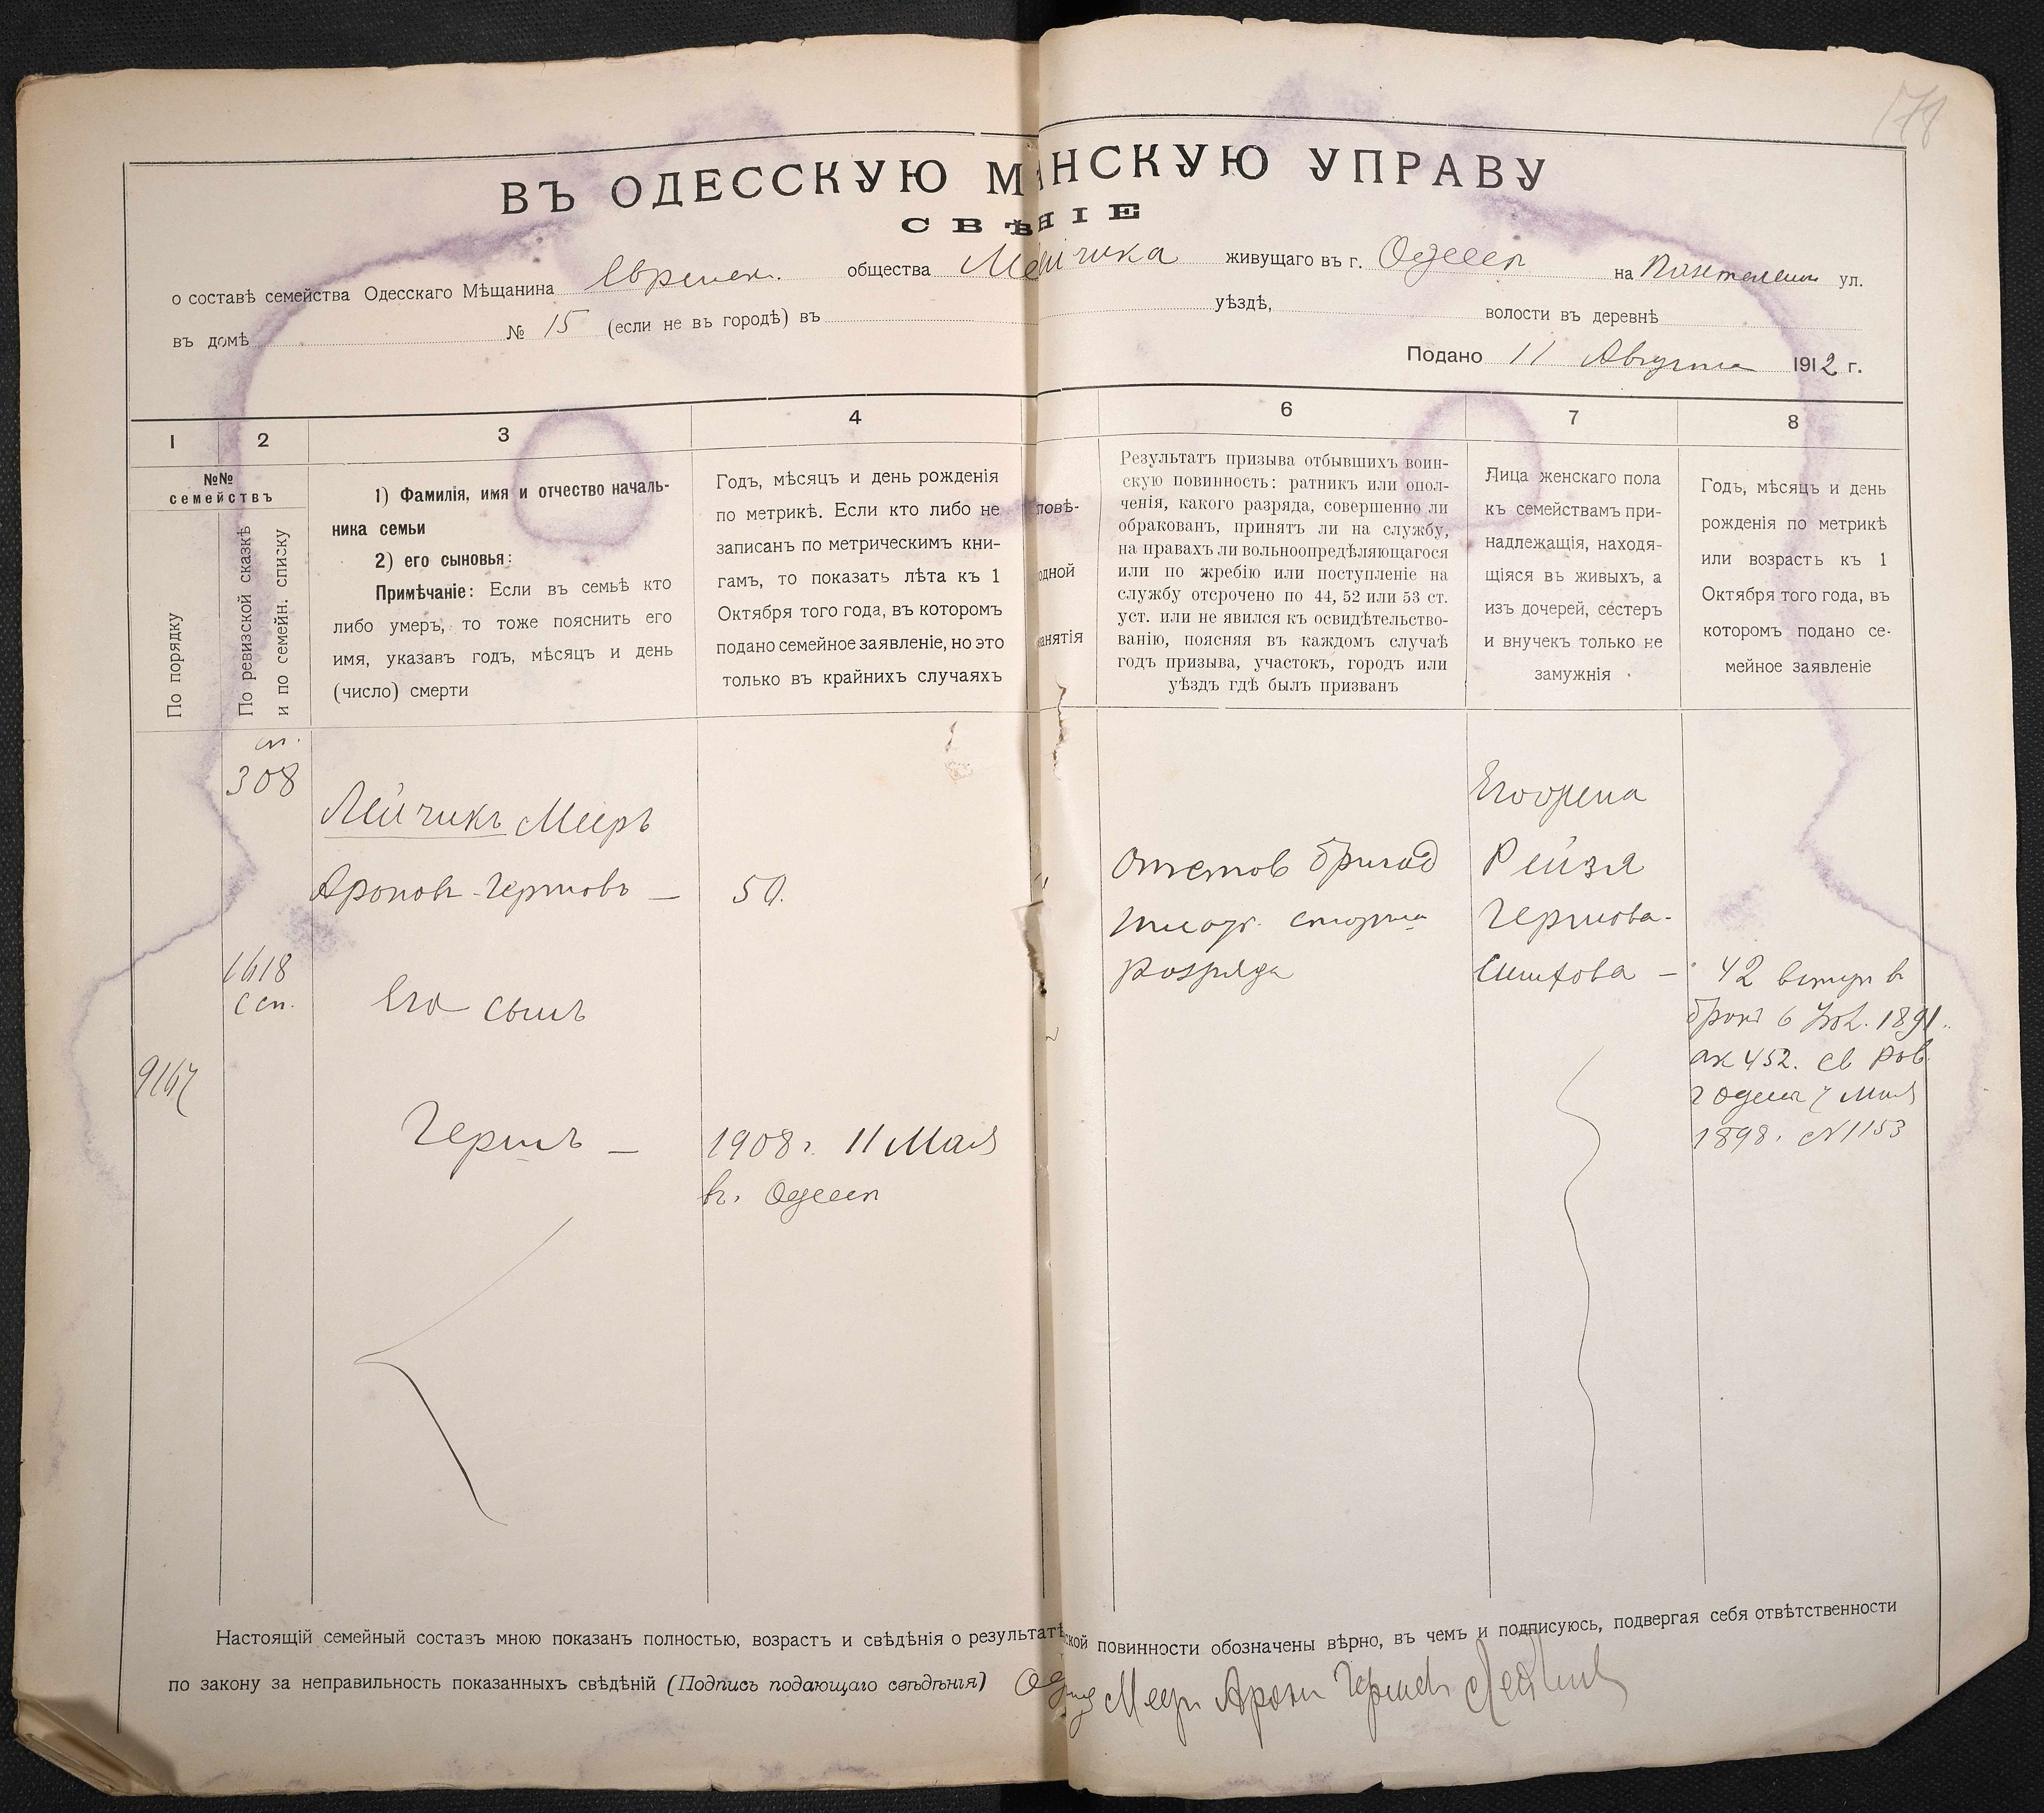 178
ВЪ ОДЕССКУЮ М НСКУЮ УПРАВУ
СВѢ НІЕ
о составѣ семейства Одесскаго Мѣщанина Евреиск. общества Мейчика живущаго въ г. Одессѣ на ул.
въ домѣ № 15 (если не въ городѣ) въ уѣздѣ, волости въ деревнѣ
Подано 11 Августа 1912 г.
1 2 3 4 6 7 8
№№
семействъ
По порядку
По ревизской сказкѣ
и по семейн. списку
1) Фамилія, имя и отчество началь-
ника семьи
2) его сыновья:
Примѣчаніе: Если въ семьѣ кто
либо умеръ, то тоже пояснить его
имя, указавъ годъ, мѣсяцъ и день
(число) смерти
Годъ, мѣсяцъ и день рожденія
по метрикѣ. Если кто либо не
записанъ по метрическимъ кни-
гамъ, то показать лѣта къ 1
Октября того года, въ которомъ
подано семейное заявленіе, но это
только въ крайнихъ случаяхъ
повѣ-
одной
занятія
Результатъ призыва отбывшихъ воин-
скую повинность: ратникъ или опол-
ченія, какого разряда, совершенно ли
обракованъ, принятъ ли на службу,
на правахъ ли вольноопредѣляющагося
или по жребію или поступленіе на
службу отсрочено по 44, 52 или 53 ст.
уст. или не явился къ освидѣтельство-
ванію, поясняя въ каждомъ случаѣ
годъ призыва, участокъ, городъ или
уѣздъ гдѣ былъ призванъ
Лица женскаго пола
къ семействамъ при-
надлежащія, находя-
щіяся въ живыхъ, а
изъ дочерей, сестеръ
и внучекъ только не
замужнія
Годъ, мѣсяцъ и день
рожденія по метрикѣ
или возрастъ къ 1
Октября того года, въ
которомъ подано се-
мейное заявленіе
сп.
308
Лейчикъ Мееръ
Ароновъ-Гершовъ — 50.
1618
ссп.
Его сынъ
9167
Гершъ — 1908 г. 11 Мая
въ. Одессѣ
разряда
Его жена
Рейзя
Гершова-
— 42 вступ въ
бракъ 6 1891
ак 452. св Рав.
г Одессы 7 Мая
1898. № 1153
Настоящій семейный составъ мною показанъ полностью, возрастъ и свѣдѣнія о результатѣ ской повинности обозначены вѣрно, въ чемъ и подписуюсь, подвергая себя отвѣтственности
по закону за неправильность показанныхъ свѣдѣній (Подпись подающаго свѣдѣнія) Меер Арон Гершов